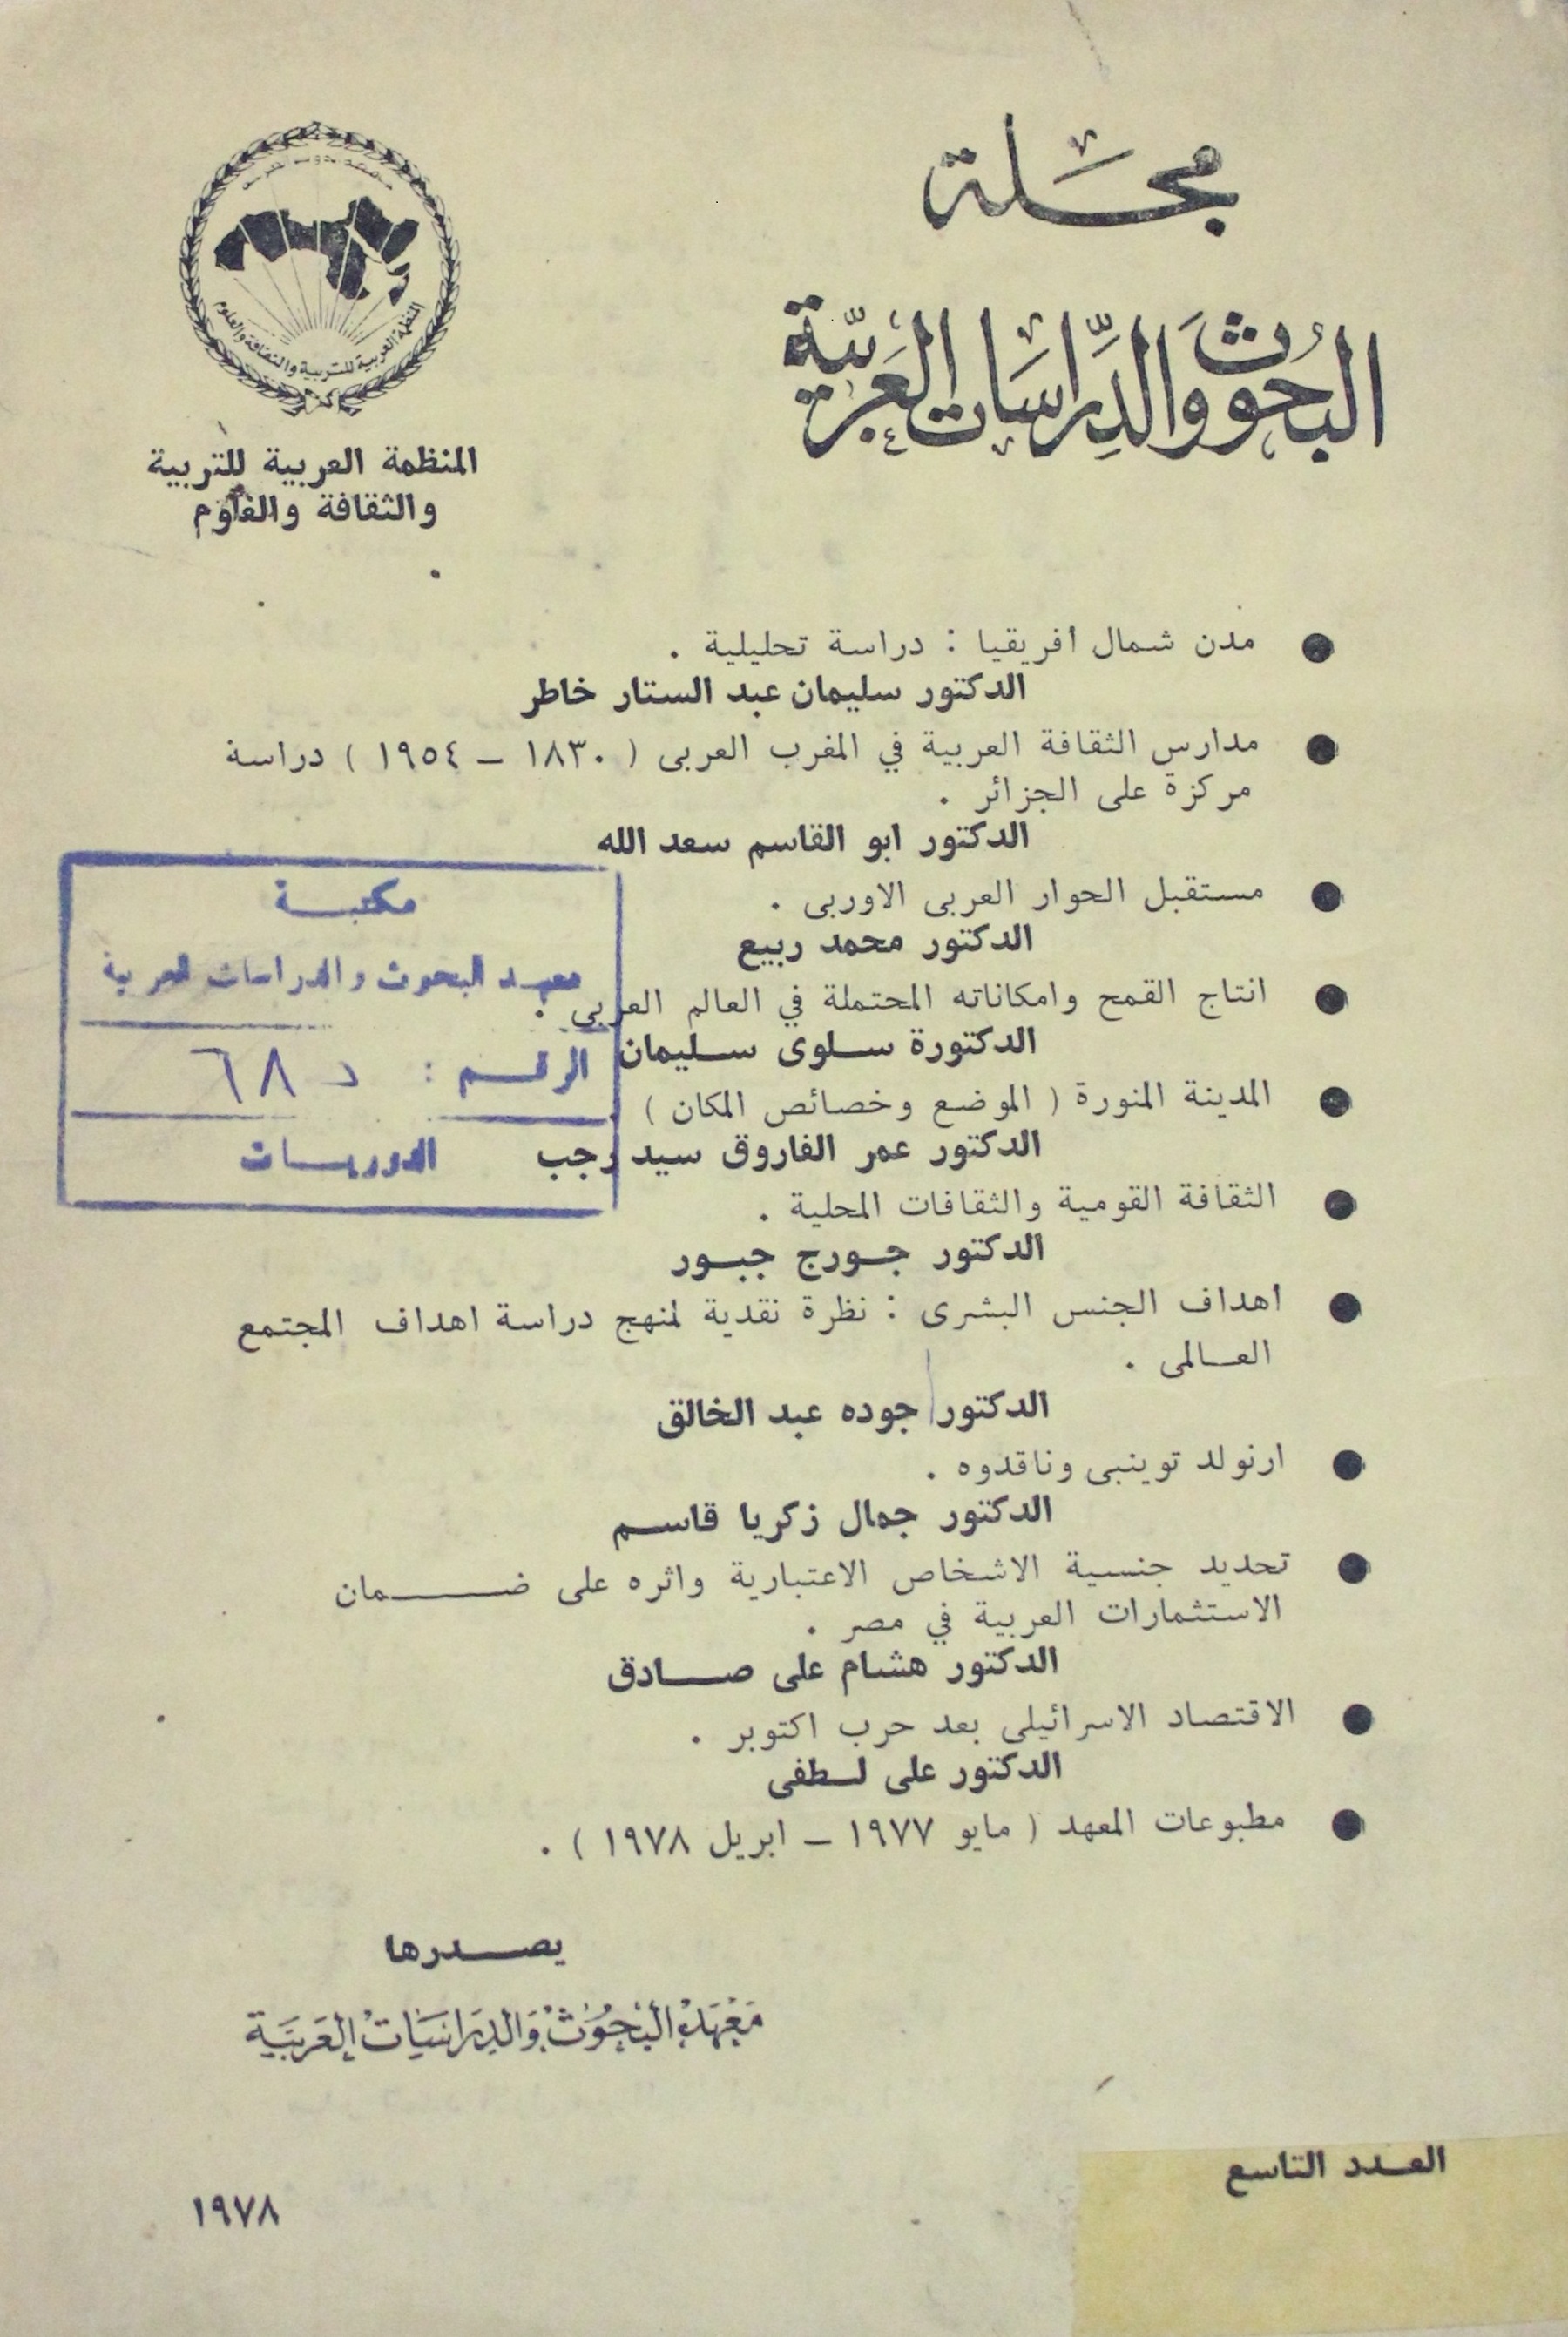 مجلة
البحوث والدراسات العربية
المنظمة العربية للتربية والثقافة والعلوم
المنظمة العربية للتربية
والثقافة والعلوم
● مدن شمال افريقيا : دراسة تحليلية .
الدكتور سليمان عبد الستار خاطر
● مدارس الثقافة العربية في المغرب العربى ( ١٨٣٠ ـ ١٩٥٤ ) دراسة
مركزة على الجزائر .
الدكتور ابو القاسم سعد الله
● مستقبل الحوار العربى الاوربى .
الدكتور محمد ربيع
● انتاج القمح وامكاناته المحتملة في العالم العربى .
الدكتورة سلوى سليمان
● المدينة المنورة ( الموضع وخصائص المكان ) .
الدكتور عمر الفاروق سيد رجب
● الثقافة القومية والثقافات المحلية .
الدكتور جورج جبور
● اهداف الجنس البشرى : نظرة نقدية لمنهج دراسة اهداف المجتمع
العالمى .
الدكتور جوده عبد الخالق
● ارنولد توينبى وناقدوه .
الدكتور جمال زكريا قاسم
● تحديد جنسية الاشخاص الاعتبارية واثره على ضمان
الاستثمارات العربية في مصر .
الدكتور هشام على صادق
● الاقتصاد الاسرائيلى بعد حرب اكتوبر .
الدكتور على لطفى
● مطبوعات المعهد ( مايو ١٩٧٧ ـ ابريل ١٩٧٨ ) .
مكتبة
معهد البحوث والدراسات العربية
الرقم : د ٦٨
الدوريات
يصدرها
معهد البحوث والدراسات العربية
العدد التاسع
١٩٧٨